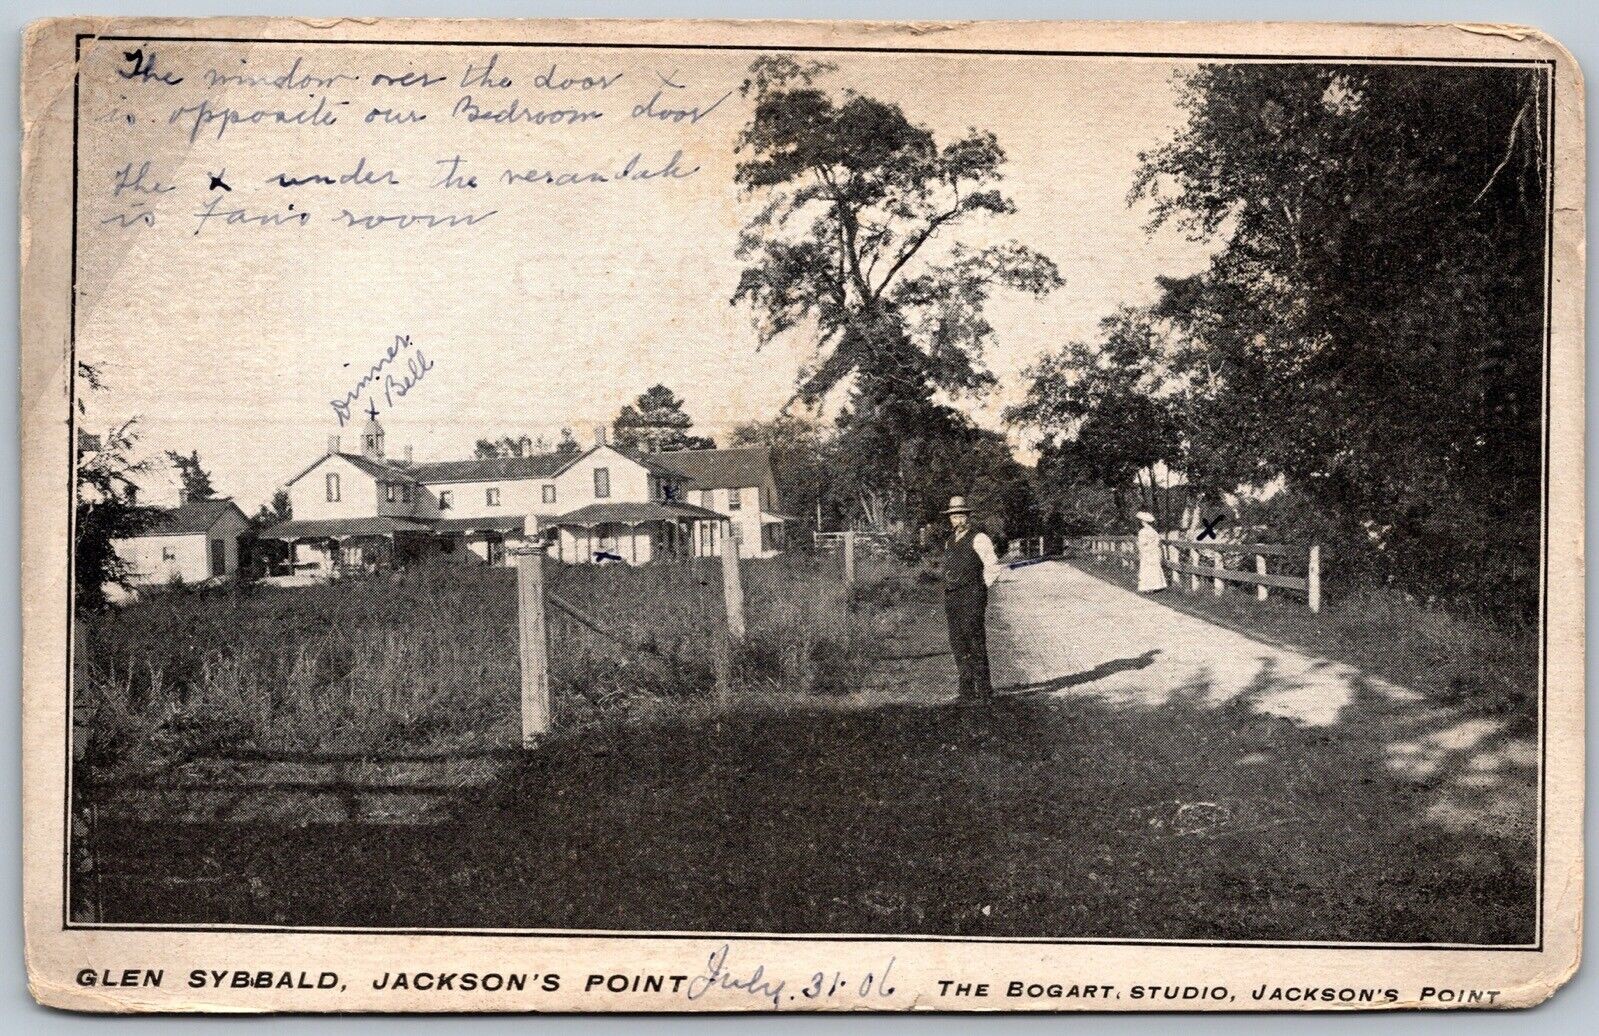 The window over the door x
is opposite our Bedroom door
The x under the verandah
is Fan's room
Dinner
x Bell
x
x
GLEN SYBBALD, JACKSON'S POINT July. 31. 06 THE BOGART. STUDIO, JACKSON'S POINT